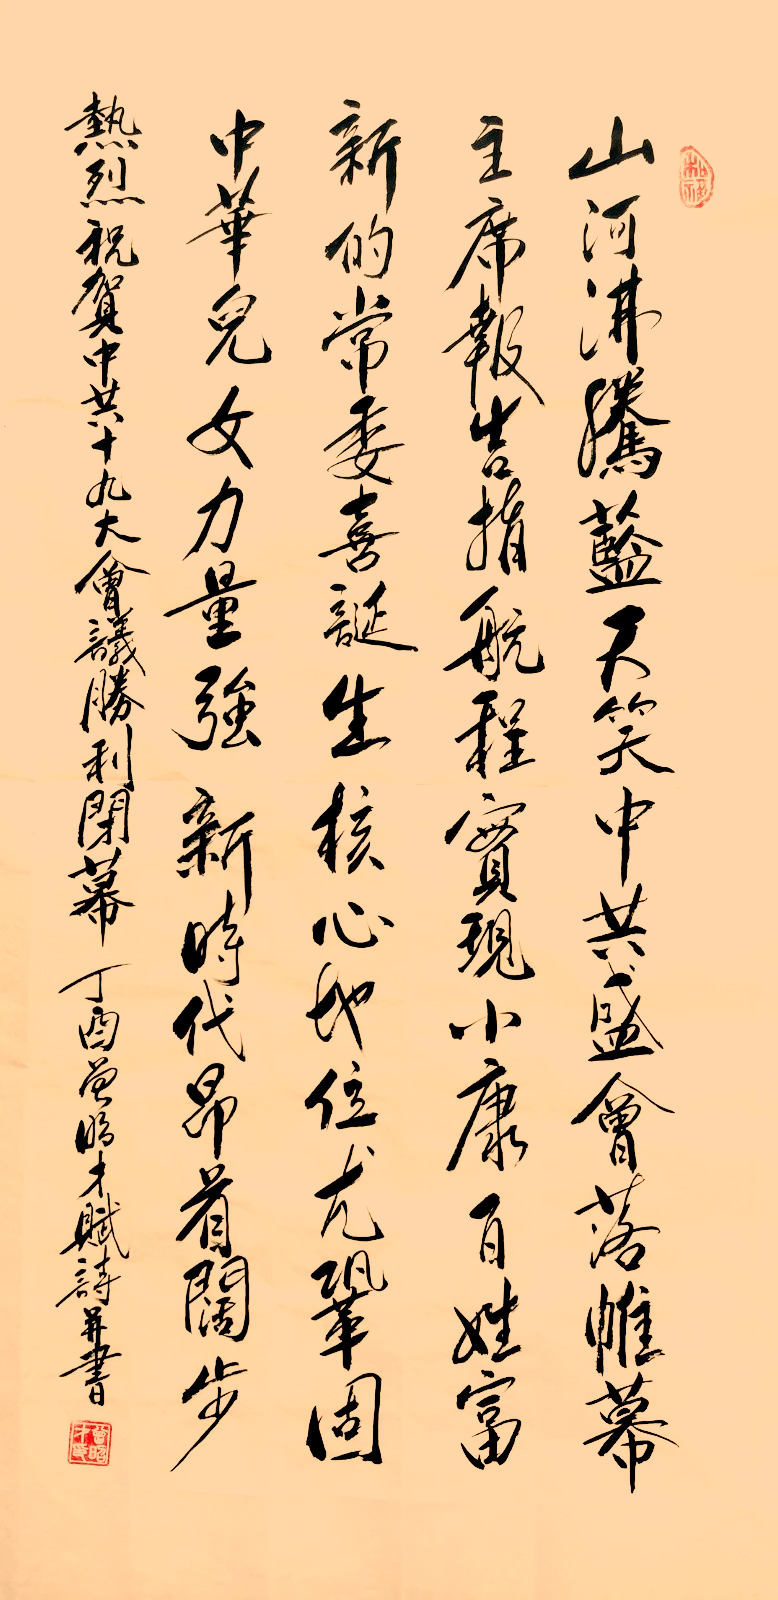 山河沸騰藍天笑中共盛會落帷幕
主席報告指航程實現小康百姓富
新的常委喜誕生核心地位尤鞏固
中華兒女力量強 新時代昂首闊步
熱烈祝賀中共十九大會議勝利閉幕 丁酉曾昭才賦詩并書
曾昭才印